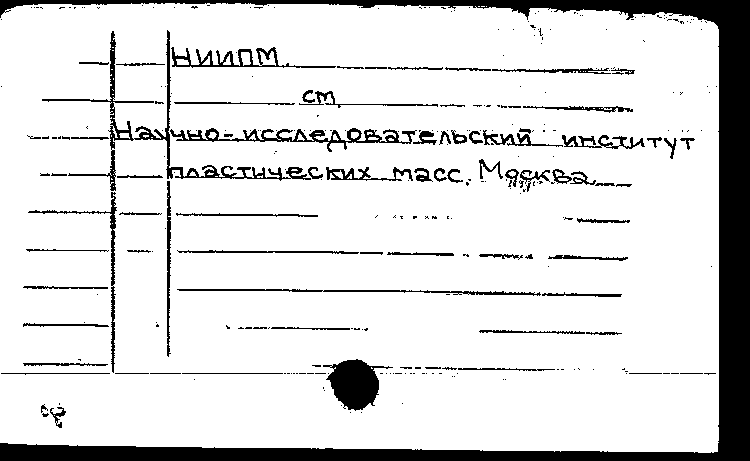 НИИПМ.
см.
Научно-исследовательский институт
пластических масс. Москва